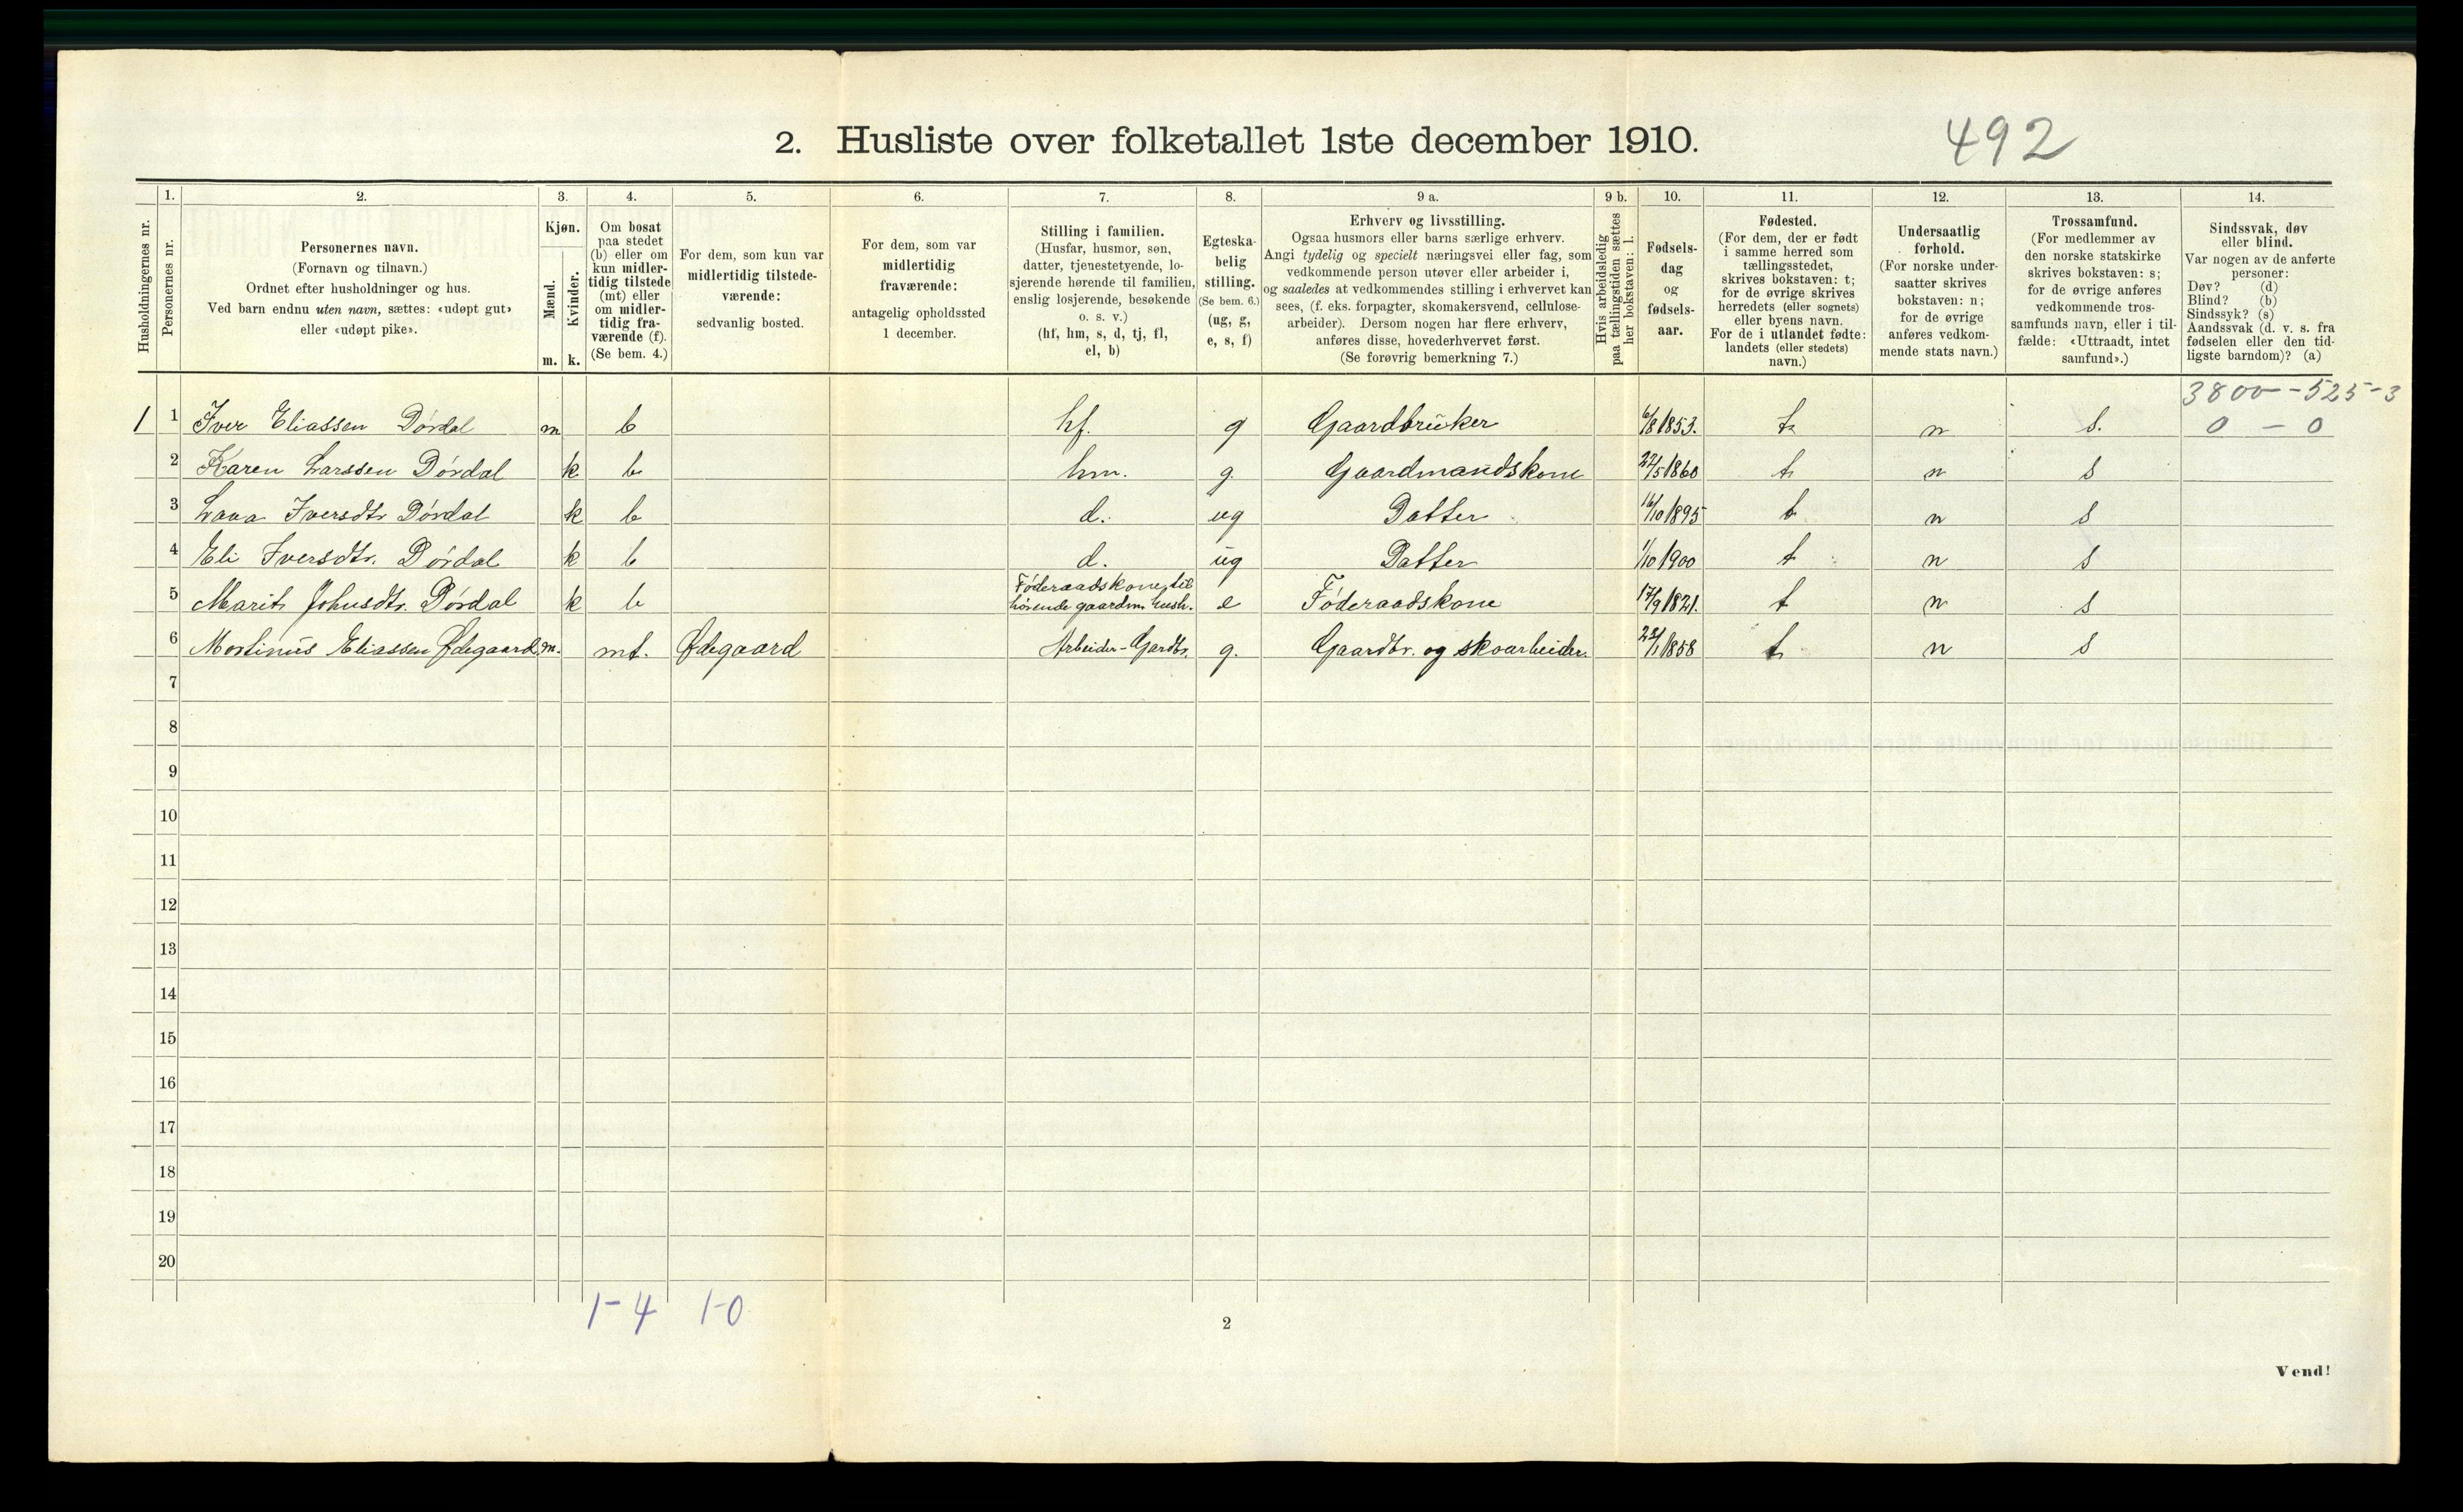 2. Husliste over folketallet 1ste december 1910.
492
Husholdningernes nr.
1.
Personernes nr.
2.
Personernes navn.
(Fornavn og tilnavn.)
Ordnet efter husholdninger og hus.
Ved barn endnu uten navn, sættes: «udøpt gut»
eller «udøpt pike».
3.
Kjøn.
Mænd.
Kvinder.
m. k.
4.
Om bosat
paa stedet
(b) eller om
kun midler-
tidig tilstede
(mt) eller
om midler-
tidig fra-
værende (f).
(Se bem. 4.)
5.
For dem, som kun var
midlertidig tilstede-
værende:
sedvanlig bosted.
6.
For dem, som var
midlertidig
fraværende:
antagelig opholdssted
1 december.
7.
Stilling i familien.
(Husfar, husmor, søn,
datter, tjenestetyende, lo-
sjerende hørende til familien,
enslig losjerende, besøkende
o. s. v.)
(hf, hm, s, d, tj, fl,
el, b)
8.
Egteska-
belig
stilling.
(Se bem. 6.)
(ug, g,
e, s, f)
9 a.
Erhverv og livsstilling.
Ogsaa husmors eller barns særlige erhverv.
Angi tydelig og specielt næringsvei eller fag, som
vedkommende person utøver eller arbeider i,
og saaledes at vedkommendes stilling i erhvervet kan
sees, (f. eks. forpagter, skomakersvend, cellulose-
arbeider). Dersom nogen har flere erhverv,
anføres disse, hovederhvervet først.
(Se forøvrig bemerkning 7.)
9 b.
Hvis arbeidsledig
paa tællingstiden sættes
her bokstaven: l.
10.
Fødsels-
dag
og
fødsels-
aar.
11.
Fødested.
(For dem, der er født
i samme herred som
tællingsstedet,
skrives bokstaven: t;
for de øvrige skrives
herredets (eller sognets)
eller byens navn.
For de i utlandet fødte:
landets (eller stedets)
navn.)
12.
Undersaatlig
forhold.
(For norske under-
saatter skrives
bokstaven: n;
for de øvrige
anføres vedkom-
mende stats navn.)
13.
Trossamfund.
(For medlemmer av
den norske statskirke
skrives bokstaven: s;
for de øvrige anføres
vedkommende tros-
samfunds navn, eller i til-
fælde: «Uttraadt, intet
samfund».)
14.
Sindssvak, døv
eller blind.
Var nogen av de anførte
personer:
Døv? (d)
Blind? (b)
Sindssyk? (s)
Aandssvak (d. v. s. fra
fødselen eller den tid-
ligste barndom)? (a)
3800 - 525 - 3
1 1 Iver Eliassen Dørdal m b hf. g Gaardbruker 6/8 1853. t n s. 0 - 0
2 Karen Larssen Dørdal k b hm. g. Gaardmandskone 22/5 1860 t n s
3 Iversdtr Dørdal k b d. ug Datter 16/10 1895 t n s
4 Eli Iversdtr. Dørdal k b d. ug Datter 1/10 1900 t n s
5 Marit Johnsdtr. Dørdal k b Føderaadskone, til
hørende gaardm. hush. e Føderaadskone 17/9 1821. t n s
6 Mortinus Eliassen Ødegaard m. mt. Ødegaard Arbeider-Gardbr. g. Gaardbr. og skoarbeider. 23/1 1858 t n s
7
8
9
10
11
12
13
14
15
16
17
18
19
20
1-4 1-0
2
Vend!